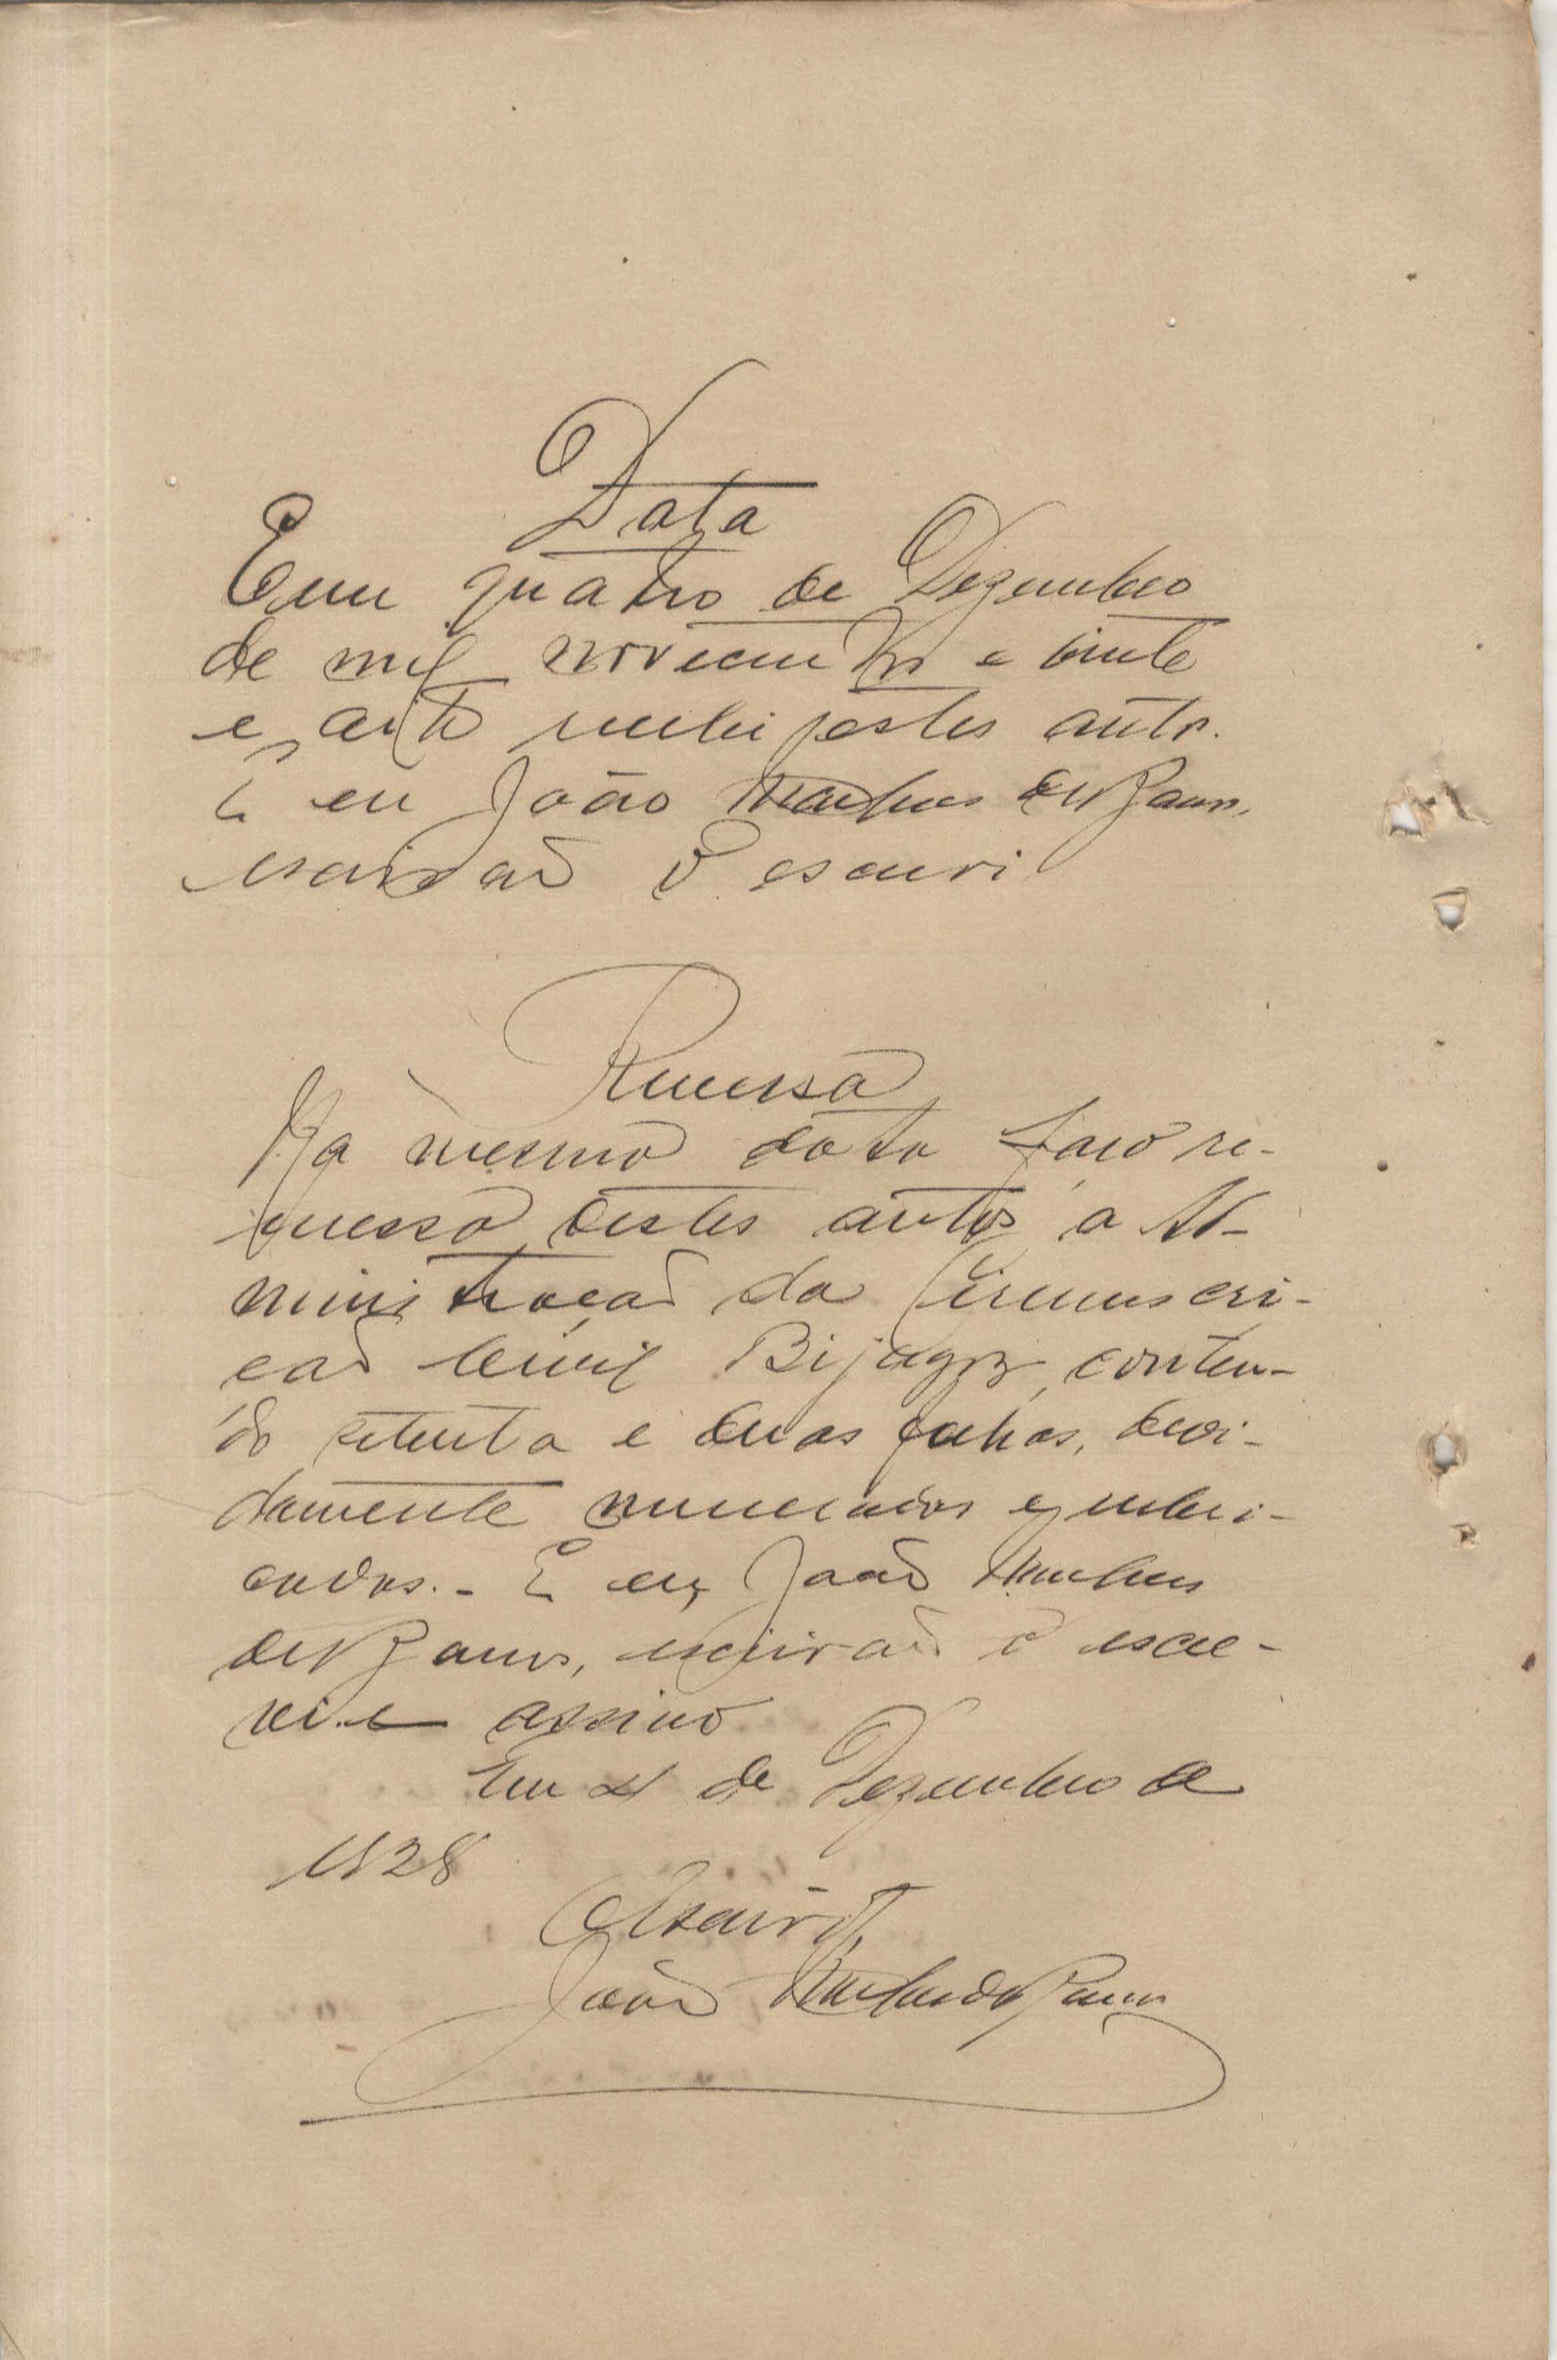 Data
Em quatro de Dezembro
de mil novecentos e vinte
e oito recebi estes autos.
E eu João
escrivão o escrevi
Remessa
Na mesma data faço re-
messa destes autos á Ad-
ministração da Circunscri-
ção Civil Bijagoz, conten-
do setenta e duas folhas, devi-
damente numeradas e rubri-
cadas.- E eu, João
escrivão o escre-
vi e assino
Em 4 de Dezembro de
1928
O Escrivão
João